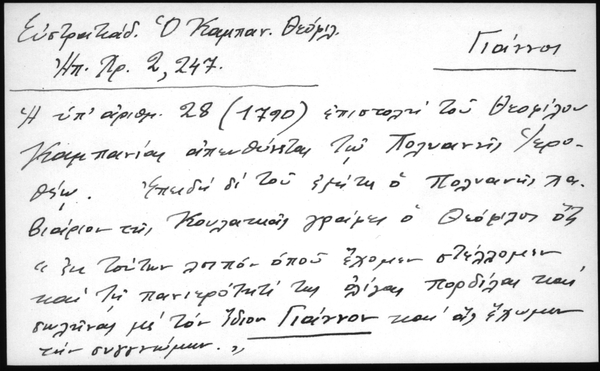 Εὐστρατιάδ. Ὁ Καμπαν. Θεόφιλ.
Ἠπ. Χρ. 2, 247.
Γιάννοι
Ἡ ὑπ' ἀριθμ. 28 (1790) ἐπιστολή τοῦ Θεοφίλου
Καμπανίας ἀπευθύνεται τῷ Πολυανῆς Ἱερο-
θέῳ. Ἐπειδή δέ τοῦ ἐζήτει ὁ Πολυανῆς χα-
βιάριον τῆς Κουλακιᾶς γράφει ὁ Θεόφιλος ὅτι
" ἐκ τούτων λοιπόν ὁποῦ ἔχομεν στέλλομεν
καί τῇ πανιερότητί της ὀλίγας πορδίλας καί
σωλῆνας μέ τόν ἴδιον Γιάννον καί ἄς ἔχωμεν
τήν συγγνώμην. "